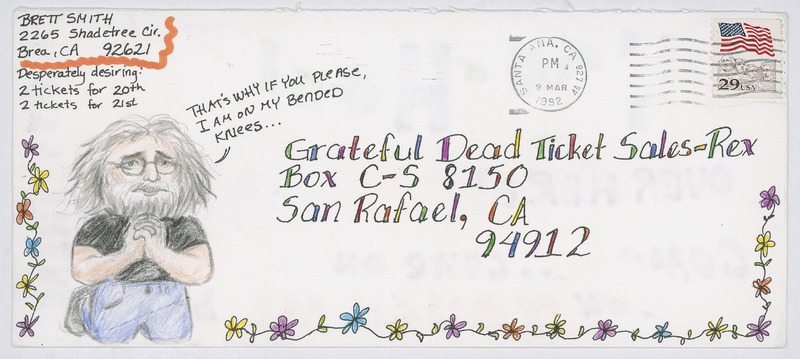 BRETT SMITH
2265 Shadetree Cir.
Brea, CA 92621
Desperately desiring:
2 tickets for 20th
2 tickets for 21st
THAT'S WHY IF YOU PLEASE,
I AM ON MY BENDED
KNEES...
SANTA ANA, CA 927
PM
9 MAR
1992
29 USA
Grateful Dead Ticket Sales-Rex
Box C-S 8150
San Rafael, CA
94912